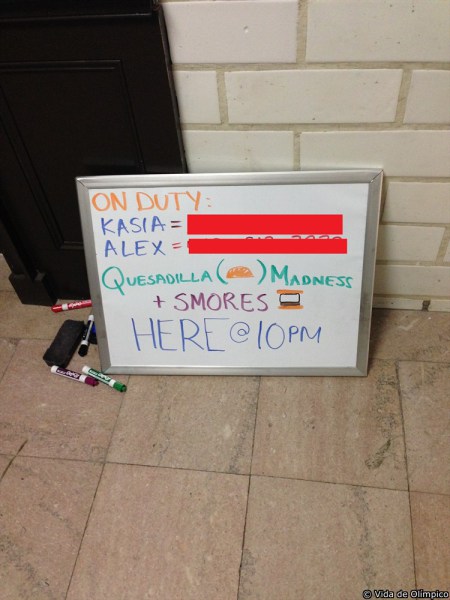 ON DUTY:
KASIA =
ALEX =
QUESADILLA ( ) MADNESS
+ SMORES
HERE @ 10PM
© Vida de Olímpico